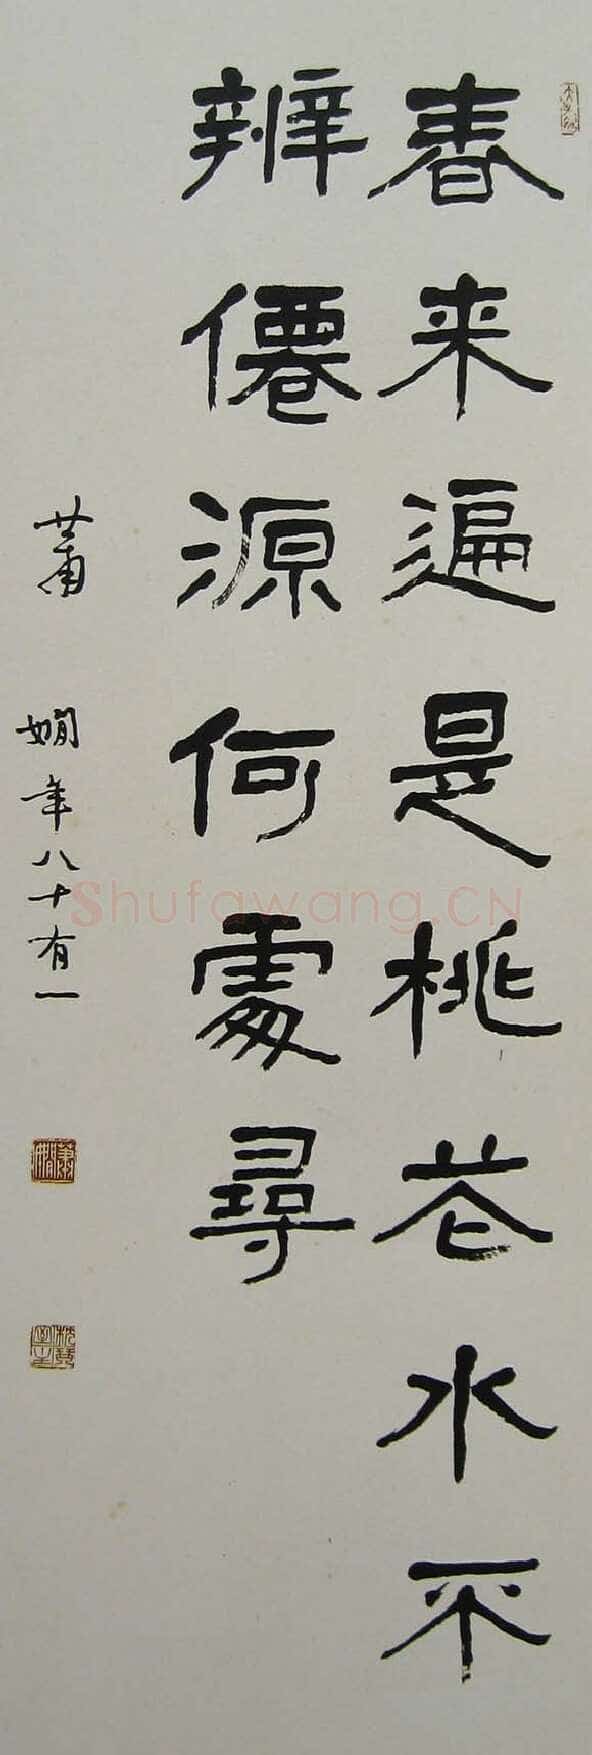 春来遍是桃花水不
辨僊源何處尋
蕭
嫻年八十有一
Shufawang.CN